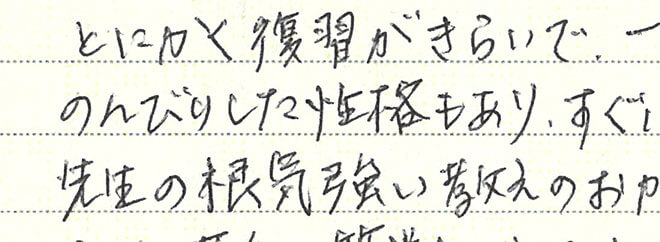 とにかく復習がきらいで、一
のんびりした性格もあり、すぐに
先生の根気強い教えのおか